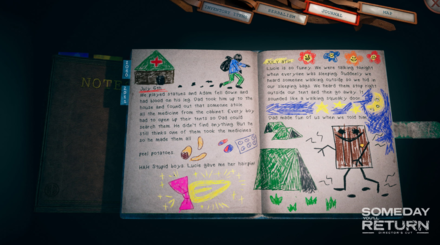 NOTE
JOURNAL
We played statues and Adam fell down and
had blood on his leg. Dad took him up to the
house and found out that someone stole
all the medicine from the cabinet. Every boy
had to open up their bunks so Dad could
search them. He didn't find anything. But he
still thinks one of them took the medicines
so he made them all
peel potatoes.
Hah! Stupid boys. Lucie gave me her hairpin
Lucie is so funny. We were talking tonight
when everyone was sleeping. Suddenly we
heard someone walking outside so we hid in
our sleeping bags. We heard them stop right
outside our tent and then go away. It
sounded like a walking squeaky door.
Dad made fun of us when we told him
SOMEDAY
YOU'LL
RETURN
DIRECTOR'S CUT